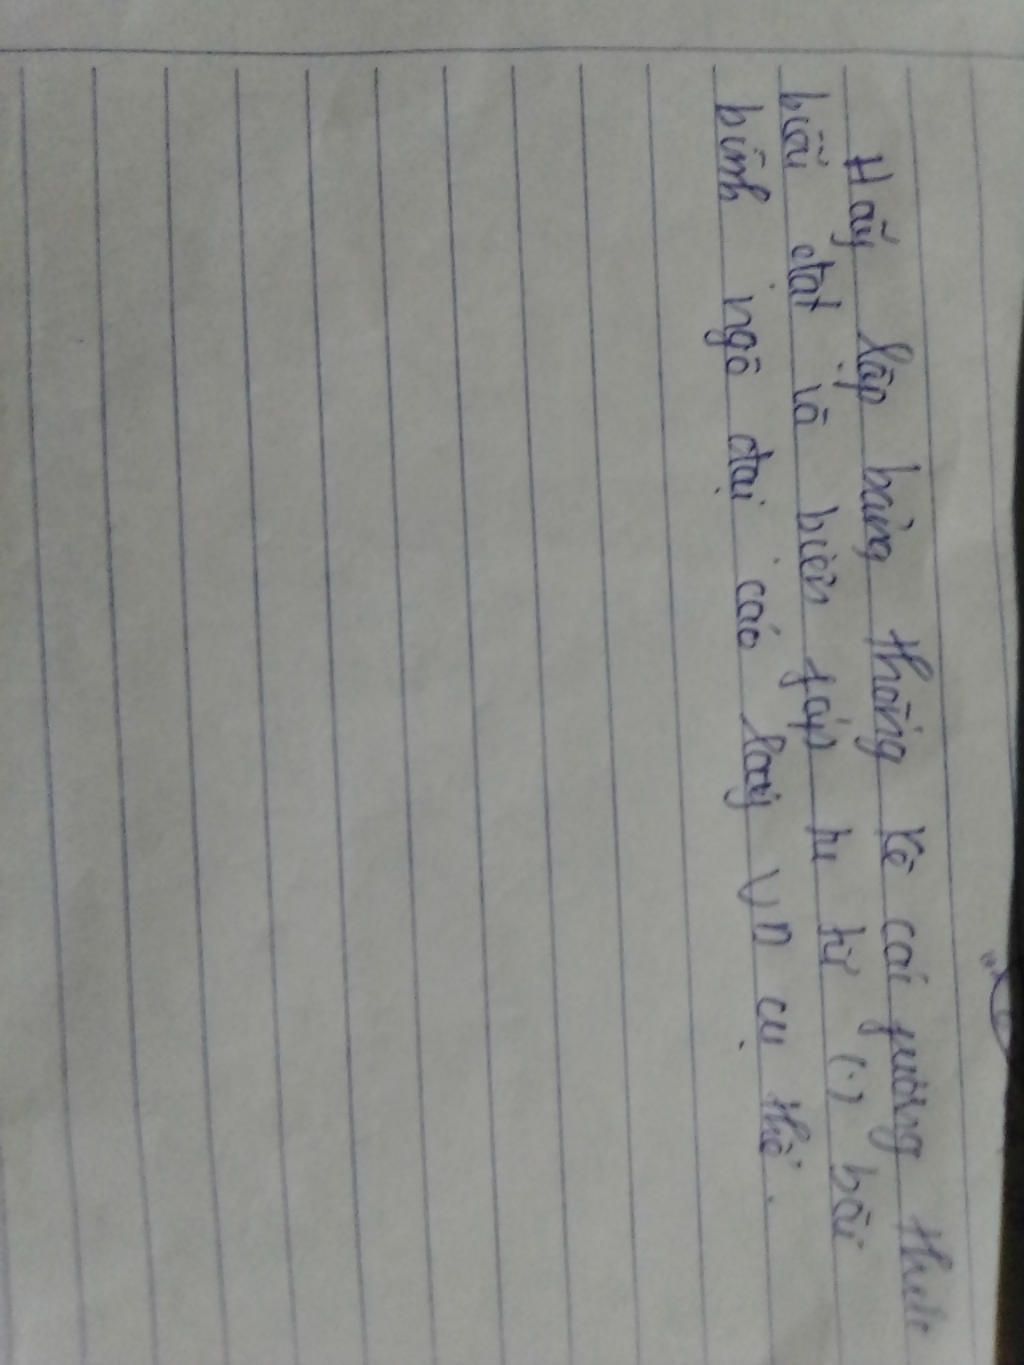 Hãy lập bảng thống kê cái phương thức
biểu đạt và biện pháp tu từ (.) bài
bình ngô đại cáo lấy VD cụ thể.